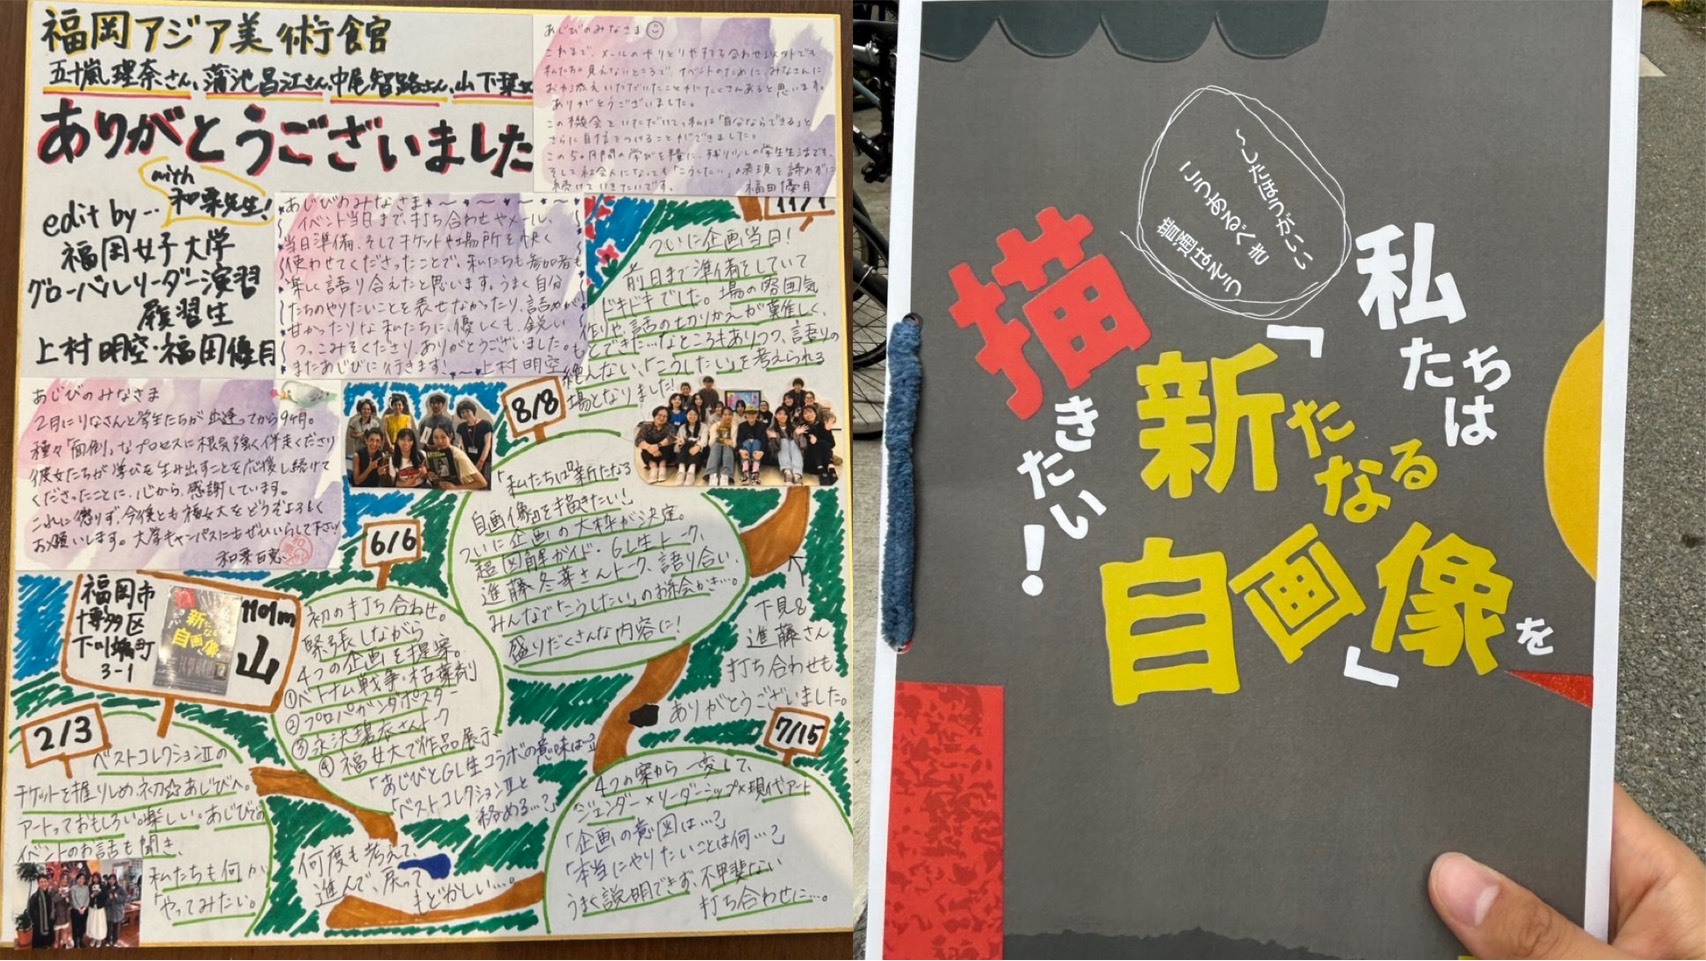 福岡アジア美術館
五十嵐理奈さん、蒲池昌江さん、中尾智路さん、山下栞
ありがとうございました
with
和栗先生!
edit by…
福岡女子大学
グローバルリーダー演習
履習生
上村明空・福田優月
あじびのみなさま
これまで、メールのやりとりやすてきな合わせ以外でも
私たちの見えないところで、イベントのために、みなさんに
お力添えいただいたことがたくさんあると思います。
ありがとうございました。
この機会をいただいて、私は「自分ならできる」と
さらに自信をつけることができました。
この5ヶ月間の学びを糧に、残り少しの学生生活でも、
そして社会人になっても「こうしたい」の表現を諦めずに
続けていきたいです。 福田優月
あじびのみなさま
イベント当日まで、打ち合わせやメール、
当日準備、そしてチケットや場所を快く
使わせてくださったことで、私たちも参加者も
楽しく語り合えたと思います。うまく自分
たちのやりたいことを表せなかったり、詰めが
甘かったりな私たちに、優しくも、鋭い
つっこみをくださり、ありがとうございました。
またあじびに行きます、 上村明空
あじびのみなさま
2月にりなさんと学生たちが出逢ってから9ヶ月。
種々「面倒」なプロセスに根気強く伴走くださり
彼女たちが学びを生み出すことを応援し続けて
くださったことに、心から、感謝しています。
これに懲りず、今後とも福女大をどうぞよろしく
お願いします。大学キャンパスにもぜひいらして下さい
和栗百恵
11/1
ついに企画当日!
前日まで準備をしていて
ドキドキでした。場の雰囲気
作りや、話の切りかえが難しく、
もっとできた…なところもありつつ、語りの
絶えない、「こうしたい」を考えられる
場となりました!
8/8
「私たちは『新たなる
自画像』を描きたい!」
ついに企画の大枠が決定。
超図解ガイド・GL生トーク、
進藤冬華さんトーク、語り合い
みんなで「こうしたい」のお絵かき…。
盛りだくさんな内容に!
下見&
進藤さん
打ち合わせも
ありがとうございました。
6/6
初の打ち合わせ。
緊張しながら
4つの企画を提案。
①ベトナム戦争・枯葉剤
②プロパガンダポスター
③永沢瑛衣さんトーク
④福女大で作品展示
「あじびとGL生コラボの意味は…」
「ベストコレクションⅡと
絡める…?」
何度も考えて、
進んで、戻って
もどかしい…。
7/15
4つの案から一変して、
ジェンダー×リーダーシップ×現代アート
「企画の意図は…?」
「本当にやりたいことは何…?」
うまく説明できず、不甲斐ない
打ち合わせに…。
福岡市
博多区
下川端町
3-1
新たなる
自画像
山
2/3
ベストコレクションⅡの
チケットを握りしめ、初☆あじびへ。
アートっておもしろい。楽しい。あじびでの
イベントのお話も聞き、
私たちも何か
「やってみたい。」
〜したほうがいい
こうするべき
普通はそう
私たちは
「新たなる
自画像」を
描きたい!